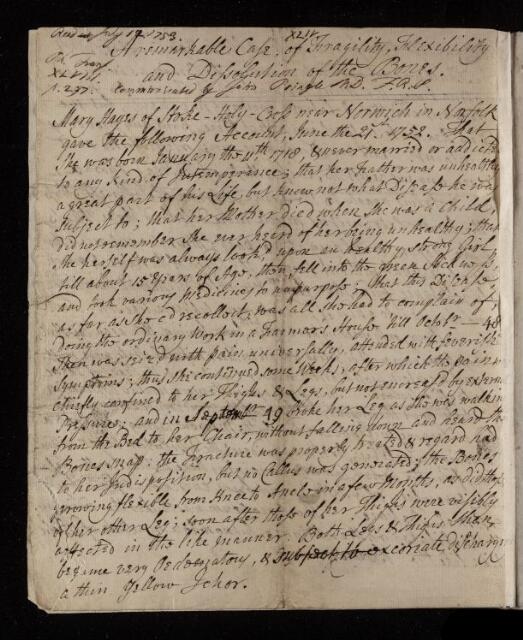 Read July 1753.
XLIV.
A remarkable Case of Fragility, Flexibility
Ph. Trans.
and Dissolution of the Bones.
XLVIII.
p. 297. Communicated by John M.D. F.R.S.
Mary Hayes of Stoke-Holy-Cross near Norwich in Norfolk
gave the following Account, June the 21. 1752. That
She was born January the 11th 1718 & never married or addicted
to any kind of Intemperence; that her Father was unhealthy
a great part of his Life, but knew not what Disease he was
Subject to; that her Mother died when She was a Child,
did not remember She ever heard of her being unhealthy; that
she herself was always look'd upon an healthy, strong Girl,
till about 15 Years of Age, then fell into the green Sickness,
and took various Medicines to no purpose; that this Disease
as far as She could recollect, was all She had to complain of,
doing the ordinary Work in a Farmers House till Octobr — 48
Then was seized with pain universally, attended with feverish
Symptoms; thus She continued some Weeks, after which the pain was
chiefly confined to her Thighs & Legs, but not increas'd by external
Pressure; and in Septembr 49 broke her Leg as She was walking
from the Bed to her Chair, without falling down and heard the
Bones snap: the Fracture was properly treated & regard had
to her Indisposition, but no Callus was generated; the Bones
growing flexible from Knee to Ancle in a few Months, as did those
of her other Leg; soon after those of her Thighs were visibly
affected in the like manner. Both Legs & Thighs then
became very Oedematous, & subject to excoriate discharging
a thin Yellow Ichor.